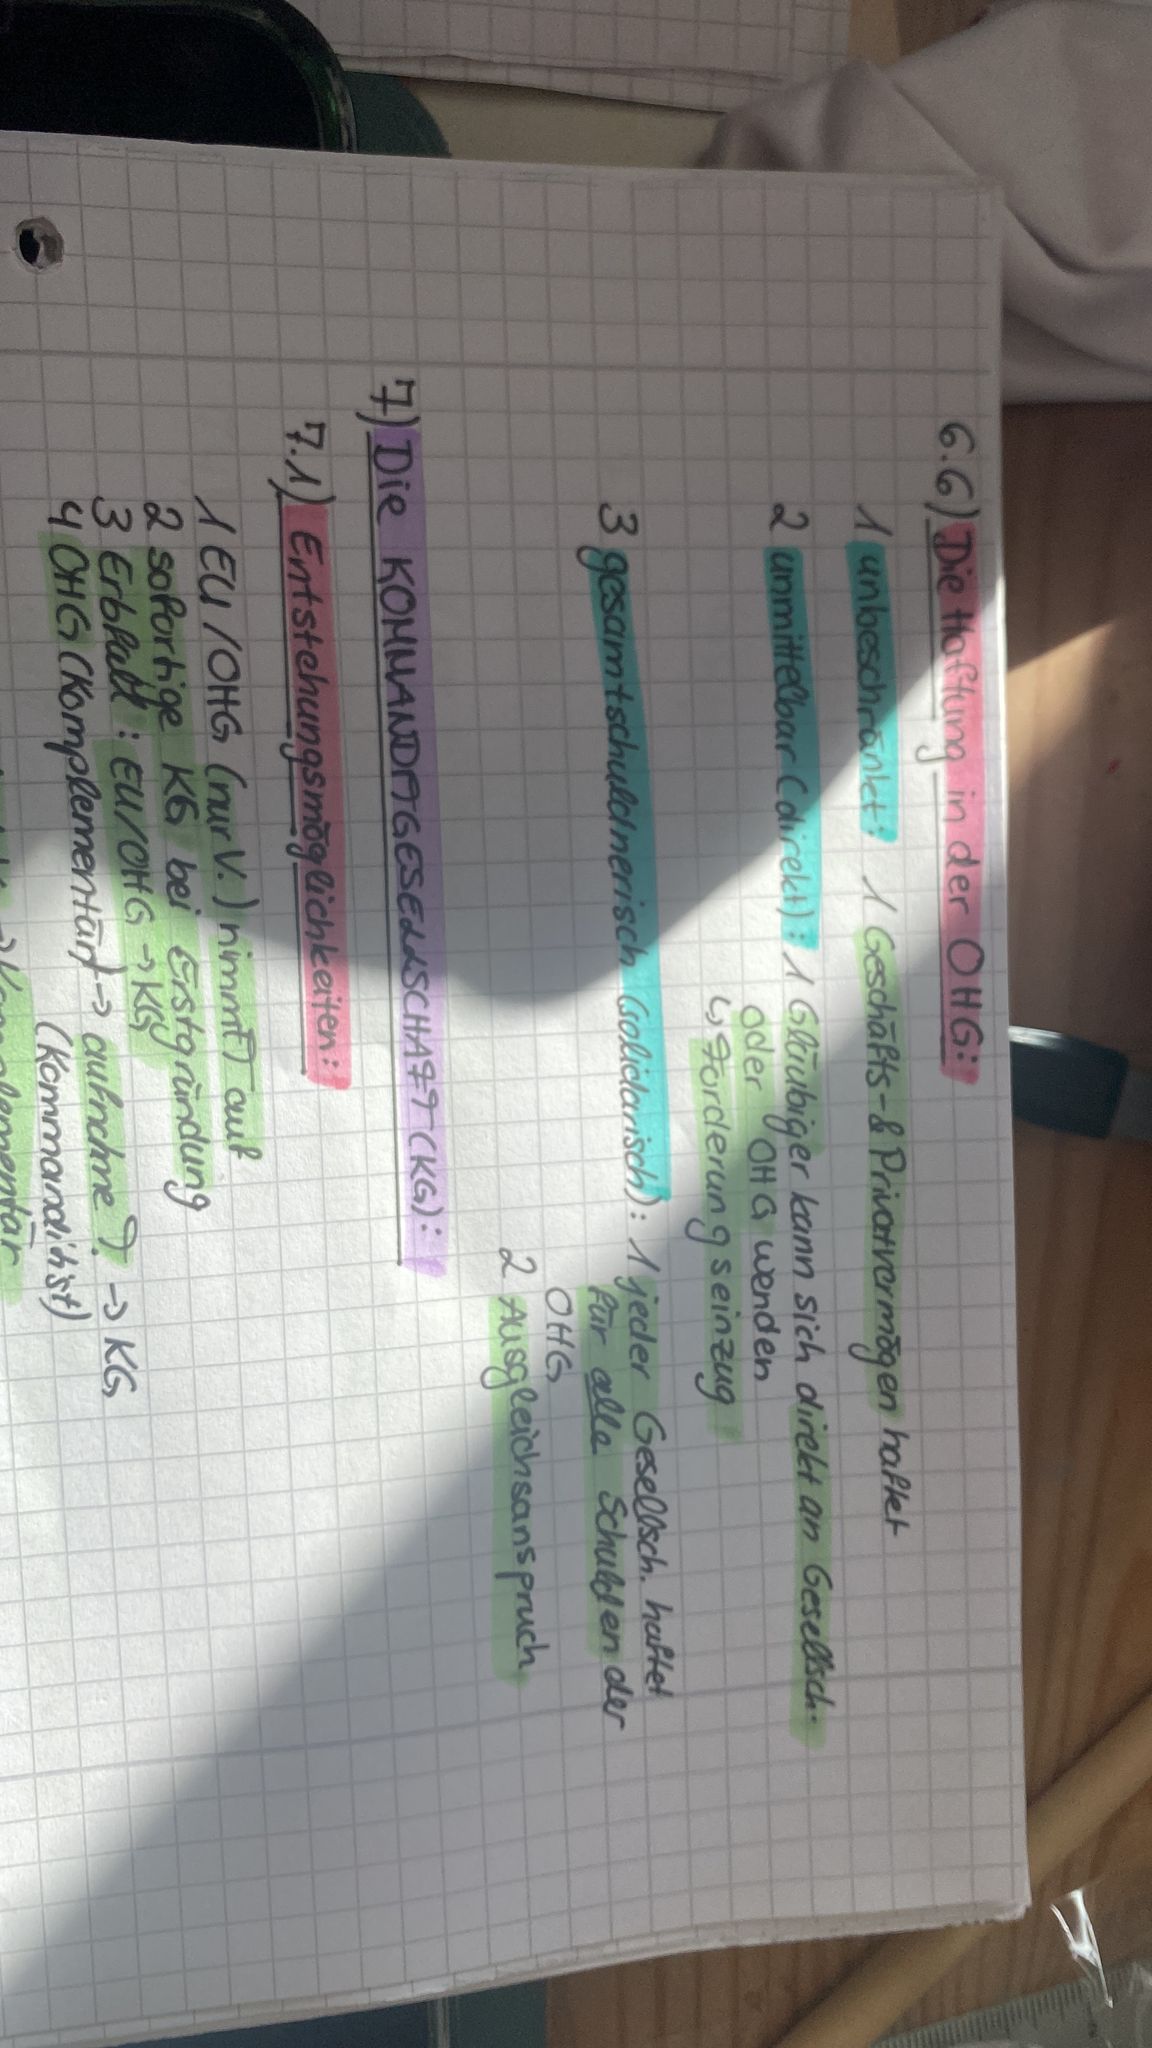 6.6) Die Haftung in der OHG:
1 unbeschränkt: 1 Geschäfts-& Privatvermögen haftet
2 unmittelbar (direkt): 1 Gläubiger kann sich direkt an Gesellsch.
oder OHG wenden
↳ Forderungseinzug
3 gesamtschuldnerisch (solidarisch): 1 jeder Gesellsch. haftet
für alle Schulden der
OHG
2 Ausgleichsanspruch
7) Die KOMMANDITGESELLSCHAFT (KG):
7.1) Entstehungsmöglichkeiten:
1 EU/OHG (nur V.) nimmt T auf
2 sofortige KG bei Erstgründung
3 Erbfall: EU/OHG → KG
4 OHG (Komplementär) → aufnahme T. → KG
(Kommanditist)